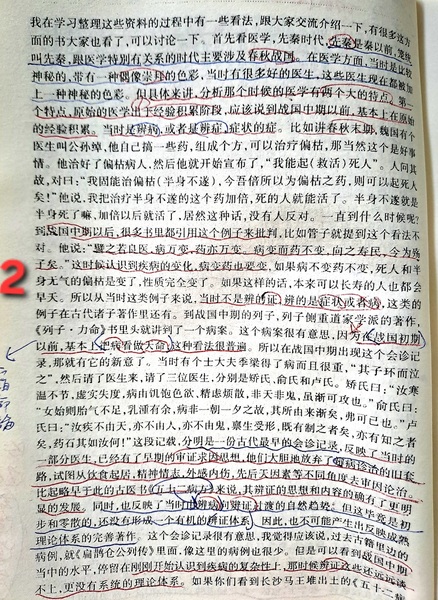 我在学习整理这些资料的过程中有一些看法，跟大家交流介绍一下，有很多这方
面的书大家也看了，可以讨论一下。首先看医学，先秦时代，先秦是秦以前，笼统
叫先秦，跟医学特别有关系的时代主要涉及春秋战国。在医学方面，当时是比较
神秘的，带有一种偶像崇拜的色彩，当时有很多好的医生，这些医生现在都被加
上一种神秘的色彩。但具体来讲，分析那个时候的医学有两个大的特点。第一
个特点，原始的医学出于经验积累阶段，应该说到战国中期以前，基本上在原始
的经验积累。当时是辨病，或者是辨症，症状的症。比如讲春秋末期，魏国有个
医生叫公孙绰，他自己搞一些药，组成个方，可以治疗偏枯，那当然这个是好事
情。他治好了偏枯病人，然后他就开始宣布了，“我能起（救活）死人”。人问其
故，对曰：“我固能治偏枯（半身不遂），今吾倍所以为偏枯之药，则可以起死人
矣！”他说，我把治疗半身不遂的这个药加倍，死的人就能活了。半身不遂就是
半身死了嘛，加倍以后就活了，居然这种话，没有人反对。一直到什么时候呢？
到战国中期以后，很多书里都引用这个例子来批判，比如管子就提到这个看法不
对。他说：“譬之若良医，病万变，药亦万变。病变而药不变，向之寿民，今为殇
子矣。”这时候认识到疾病的变化，病变药也要变，如果病不变药不变，死人和半
身无气的偏枯是变了，性质完全变了。如果这样的话，本来可以长寿的人也都会
早天。所以从当时这类例子来说，当时不是辨的证，辨的是症状或者病，这类的
例子在古代诸子著作里还有。到战国中期的列子，列子侧重道家学派的著作，
《列子·力命》书里头就讲到了一个病案。这个病案很有意思，因为战国初期
以前，基本上把病看做天命，这种看法很普遍。所以在战国中期出现这个会诊记
录，那就有它的新意了。当时有个士大夫季梁得了病而且很重，“其子环而泣
之”，然后请了医生来，请了三位医生，分别是矫氏，俞氏和卢氏。矫氏曰：“汝寒
温不节，虚实失度，病由饥饱色欲，精虑烦散，非天非鬼，虽渐可攻也。”俞氏曰：
“女始则胎气不足，乳湩有余，病非一朝一夕之故，其所由来渐矣，弗可已也。”卢
氏曰：“汝疾不由天，亦不由人，亦不由鬼，禀生受形，既有制之者矣，亦有知之者
矣，药石其如汝何！”这段记载，分明是一份古代最早的会诊记录，反映了当时的
一部分医生，已经有了早期的审证求因思想，他们大胆地放弃了鬼病诊治的旧套
路，试图从饮食起居，精神情志，外感内伤，先后天因素等不同角度去审因论治。
比起略早于此的古医书《五十二病方》来说，其辨证的思想和内容的确有了更明
显的发展。同时，也反映了当时由辨病向辨证过渡的自然趋势。但这毕竟是初
步和零散的，还没有形成一个有机的辨证体系，因此，也不可能产生出反映成熟
理论体系的完善著作。这个会诊记录很有意思，我觉得应该说，过去古籍里边的
病例，就《扁鹊仓公列传》里面，像这里的病例也很少。但是可以看到战国中期
当中的水平，停留在刚刚开始认识到疾病的复杂性上，那时候辨证这些还远远谈
不上，更没有系统的理论体系。如果你们看到长沙马王堆出土的《五十二病
2